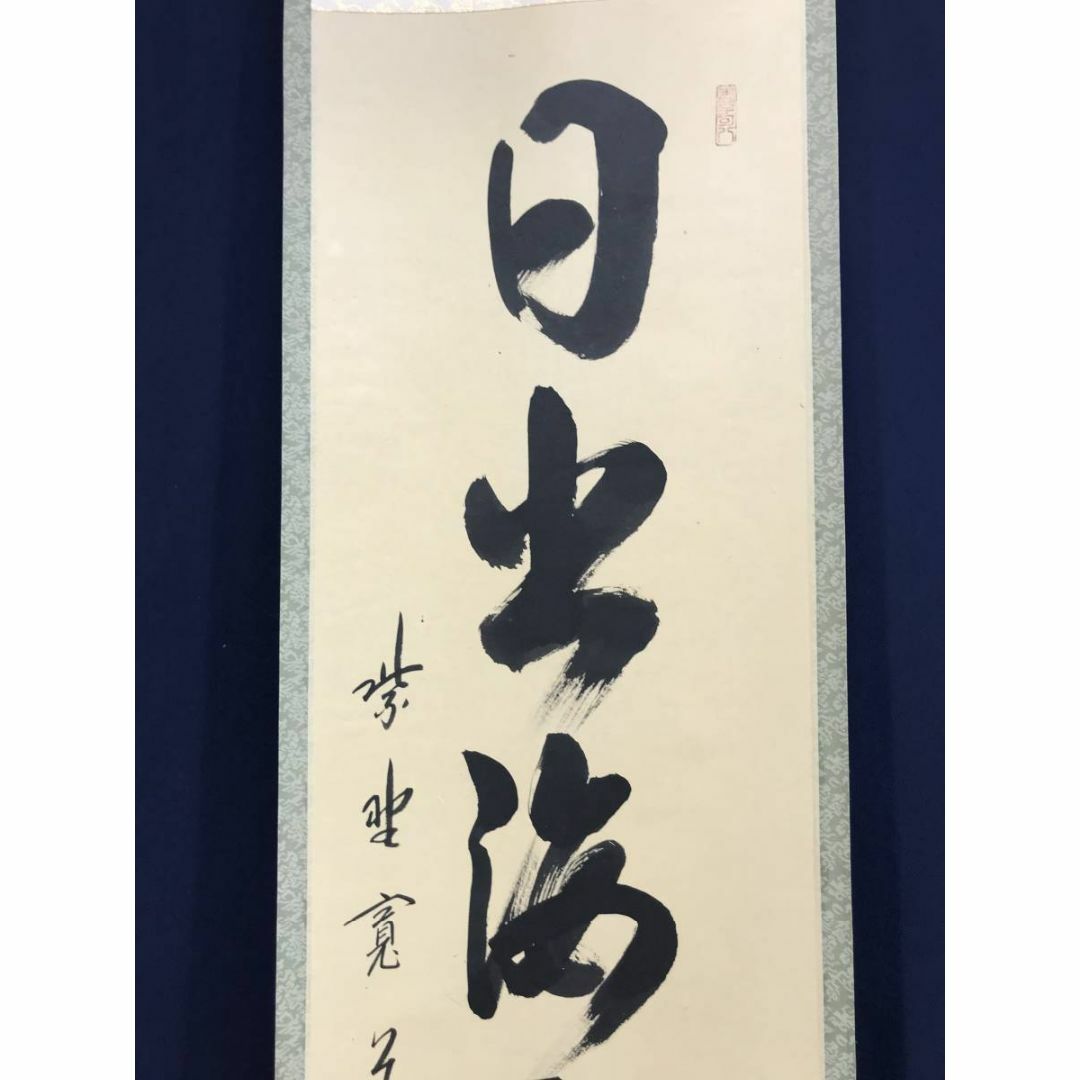 日出海
紫野寛